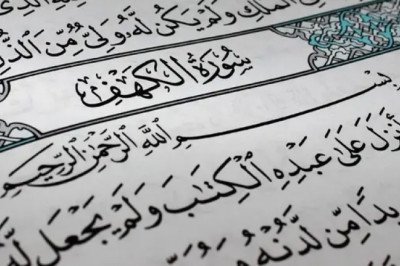 ٱلْمُلْكِ وَلَمْ يَكُن لَّهُۥ وَلِىٌّ مِّنَ ٱلذُّلِّ
سُورَةُ الْكَهْفِ
بِسْمِ ٱللَّهِ ٱلرَّحْمَٰنِ ٱلرَّحِيمِ
أَنزَلَ عَلَىٰ عَبْدِهِ ٱلْكِتَٰبَ وَلَمْ يَجْعَل لَّهُۥ
مِّن لَّدُنْهُ وَيُبَشِّرَ